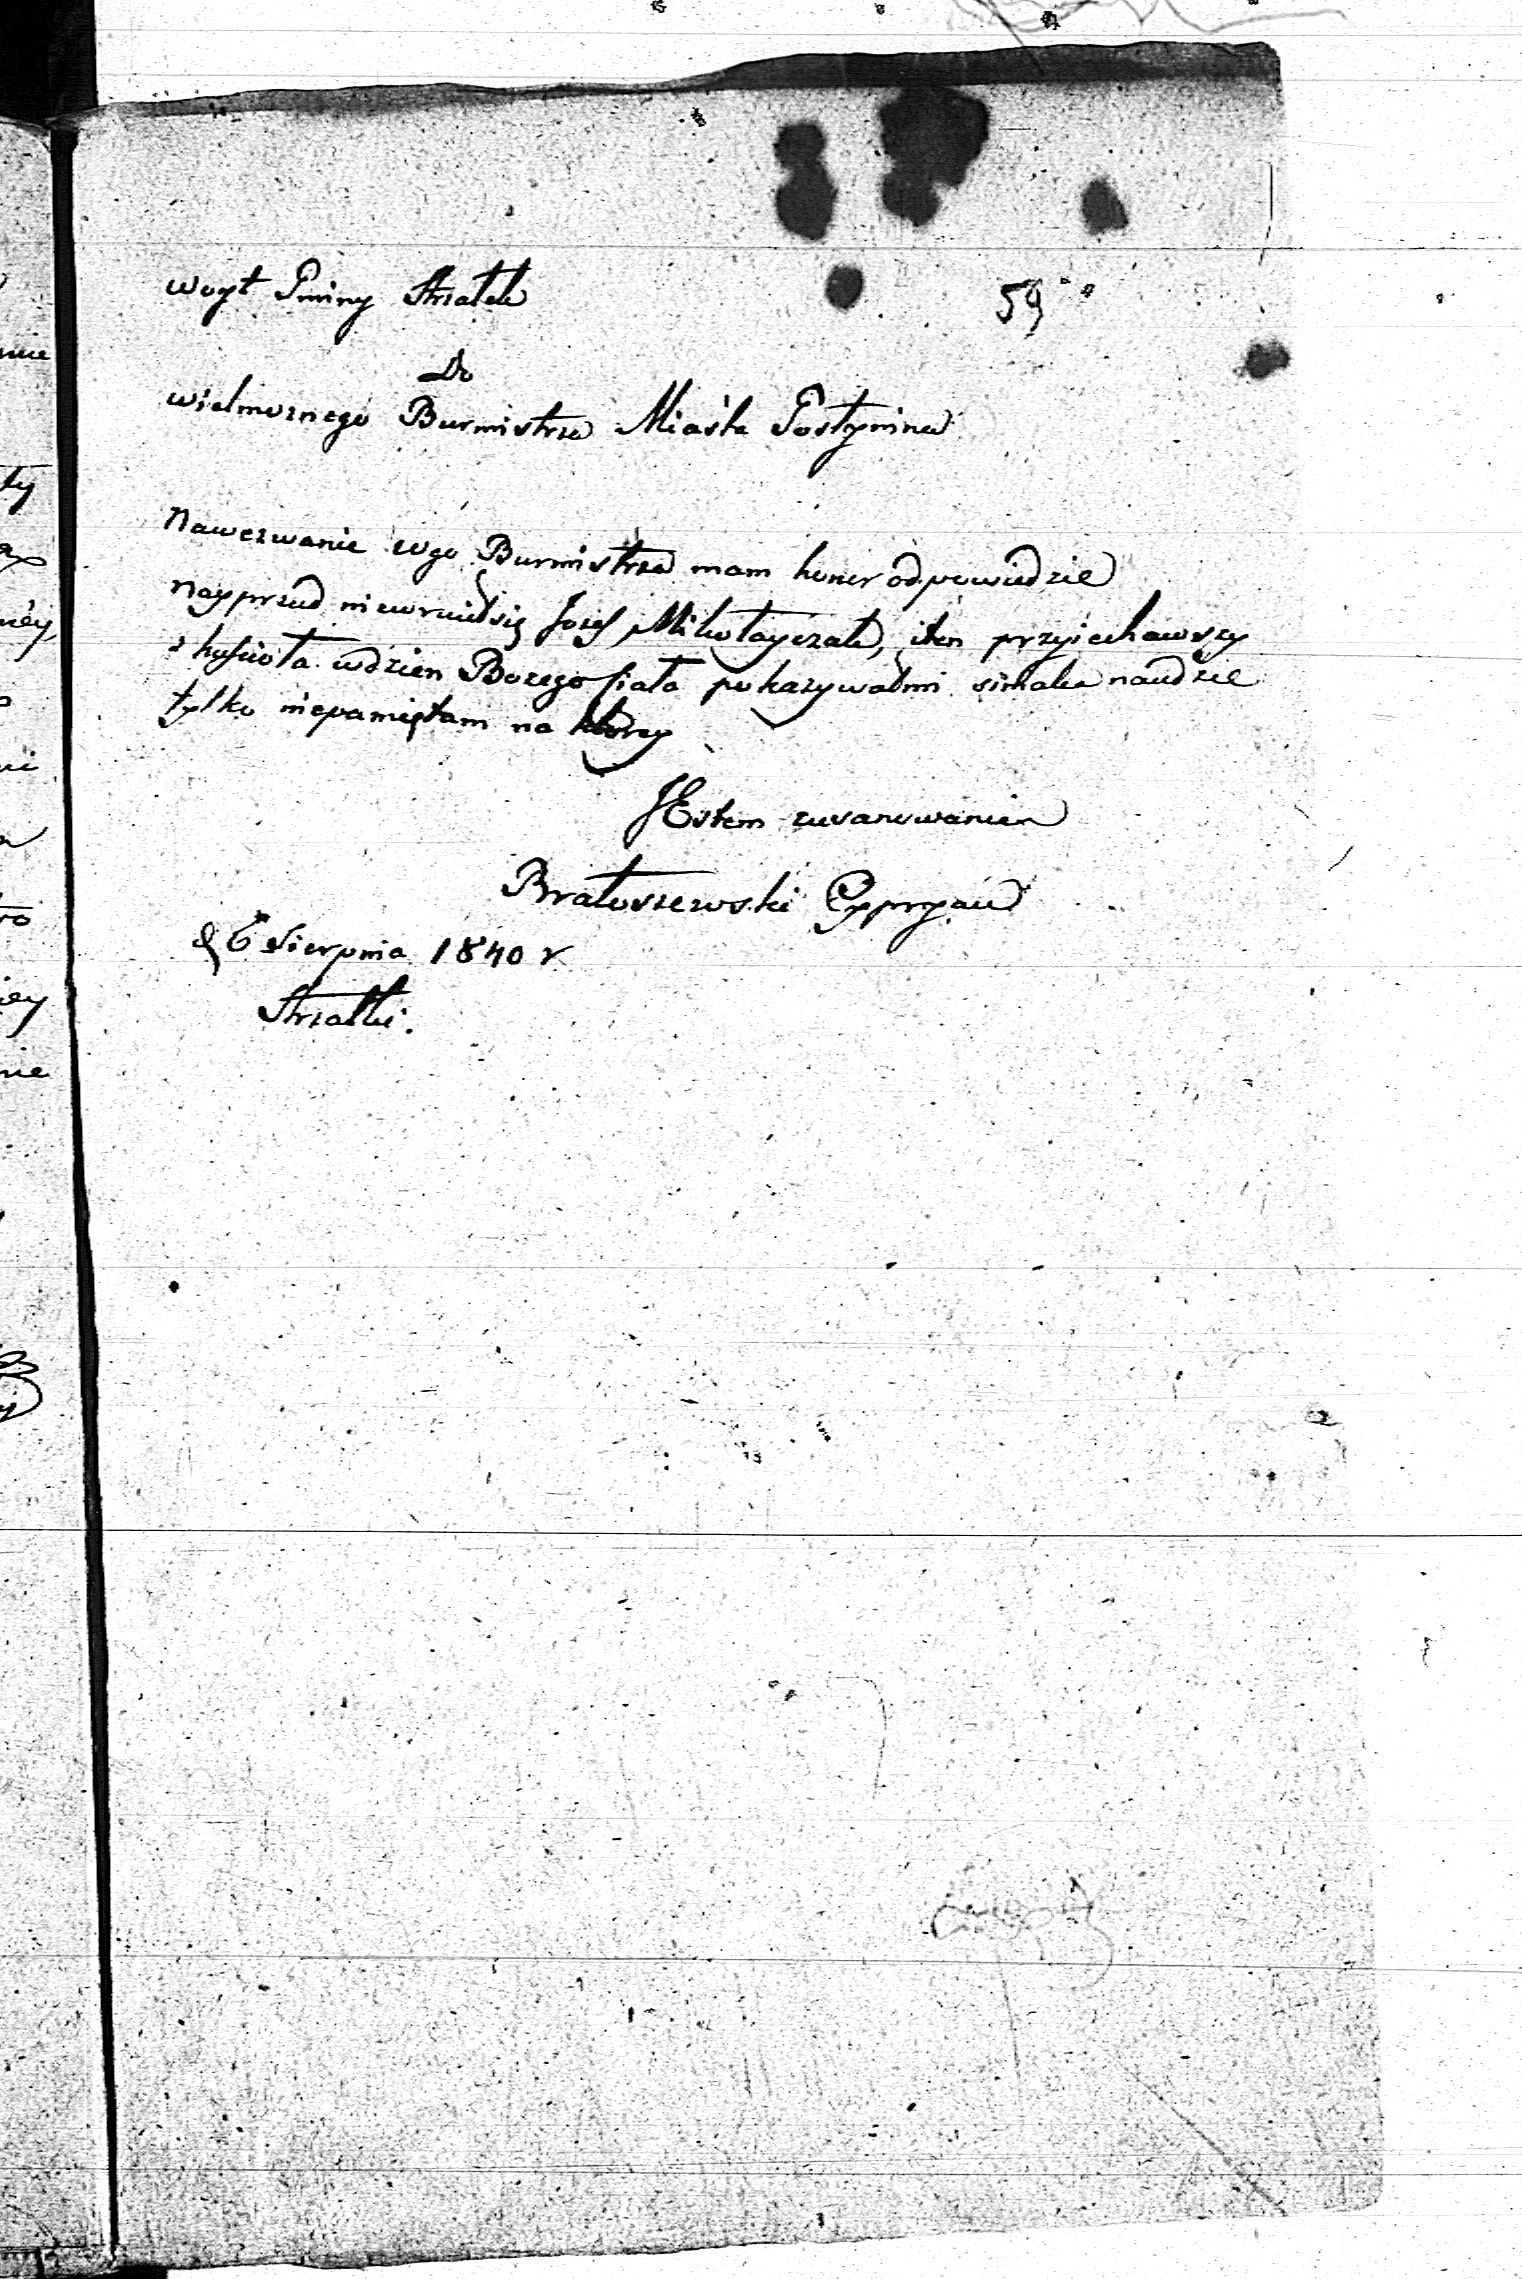 Woyt Gminy Strzałek
59
Do
wielmoznego Burmistrza Miasta Gostynina
Nawezwanie wgo Burmistrza mam honor odpowiedzie
Nayprzud niewruiełsię Jozef Mikołayczak, iten przyiechawszy
z kosiioła wdzien Bozego Ciała pokazywałmi siniaka naudzie
tylko niepamiętam na ktorey
JEstem zuszanowaniem
Bratoszewski Cypryan
d 6 Sierpnia 1840 r
Strzałki.